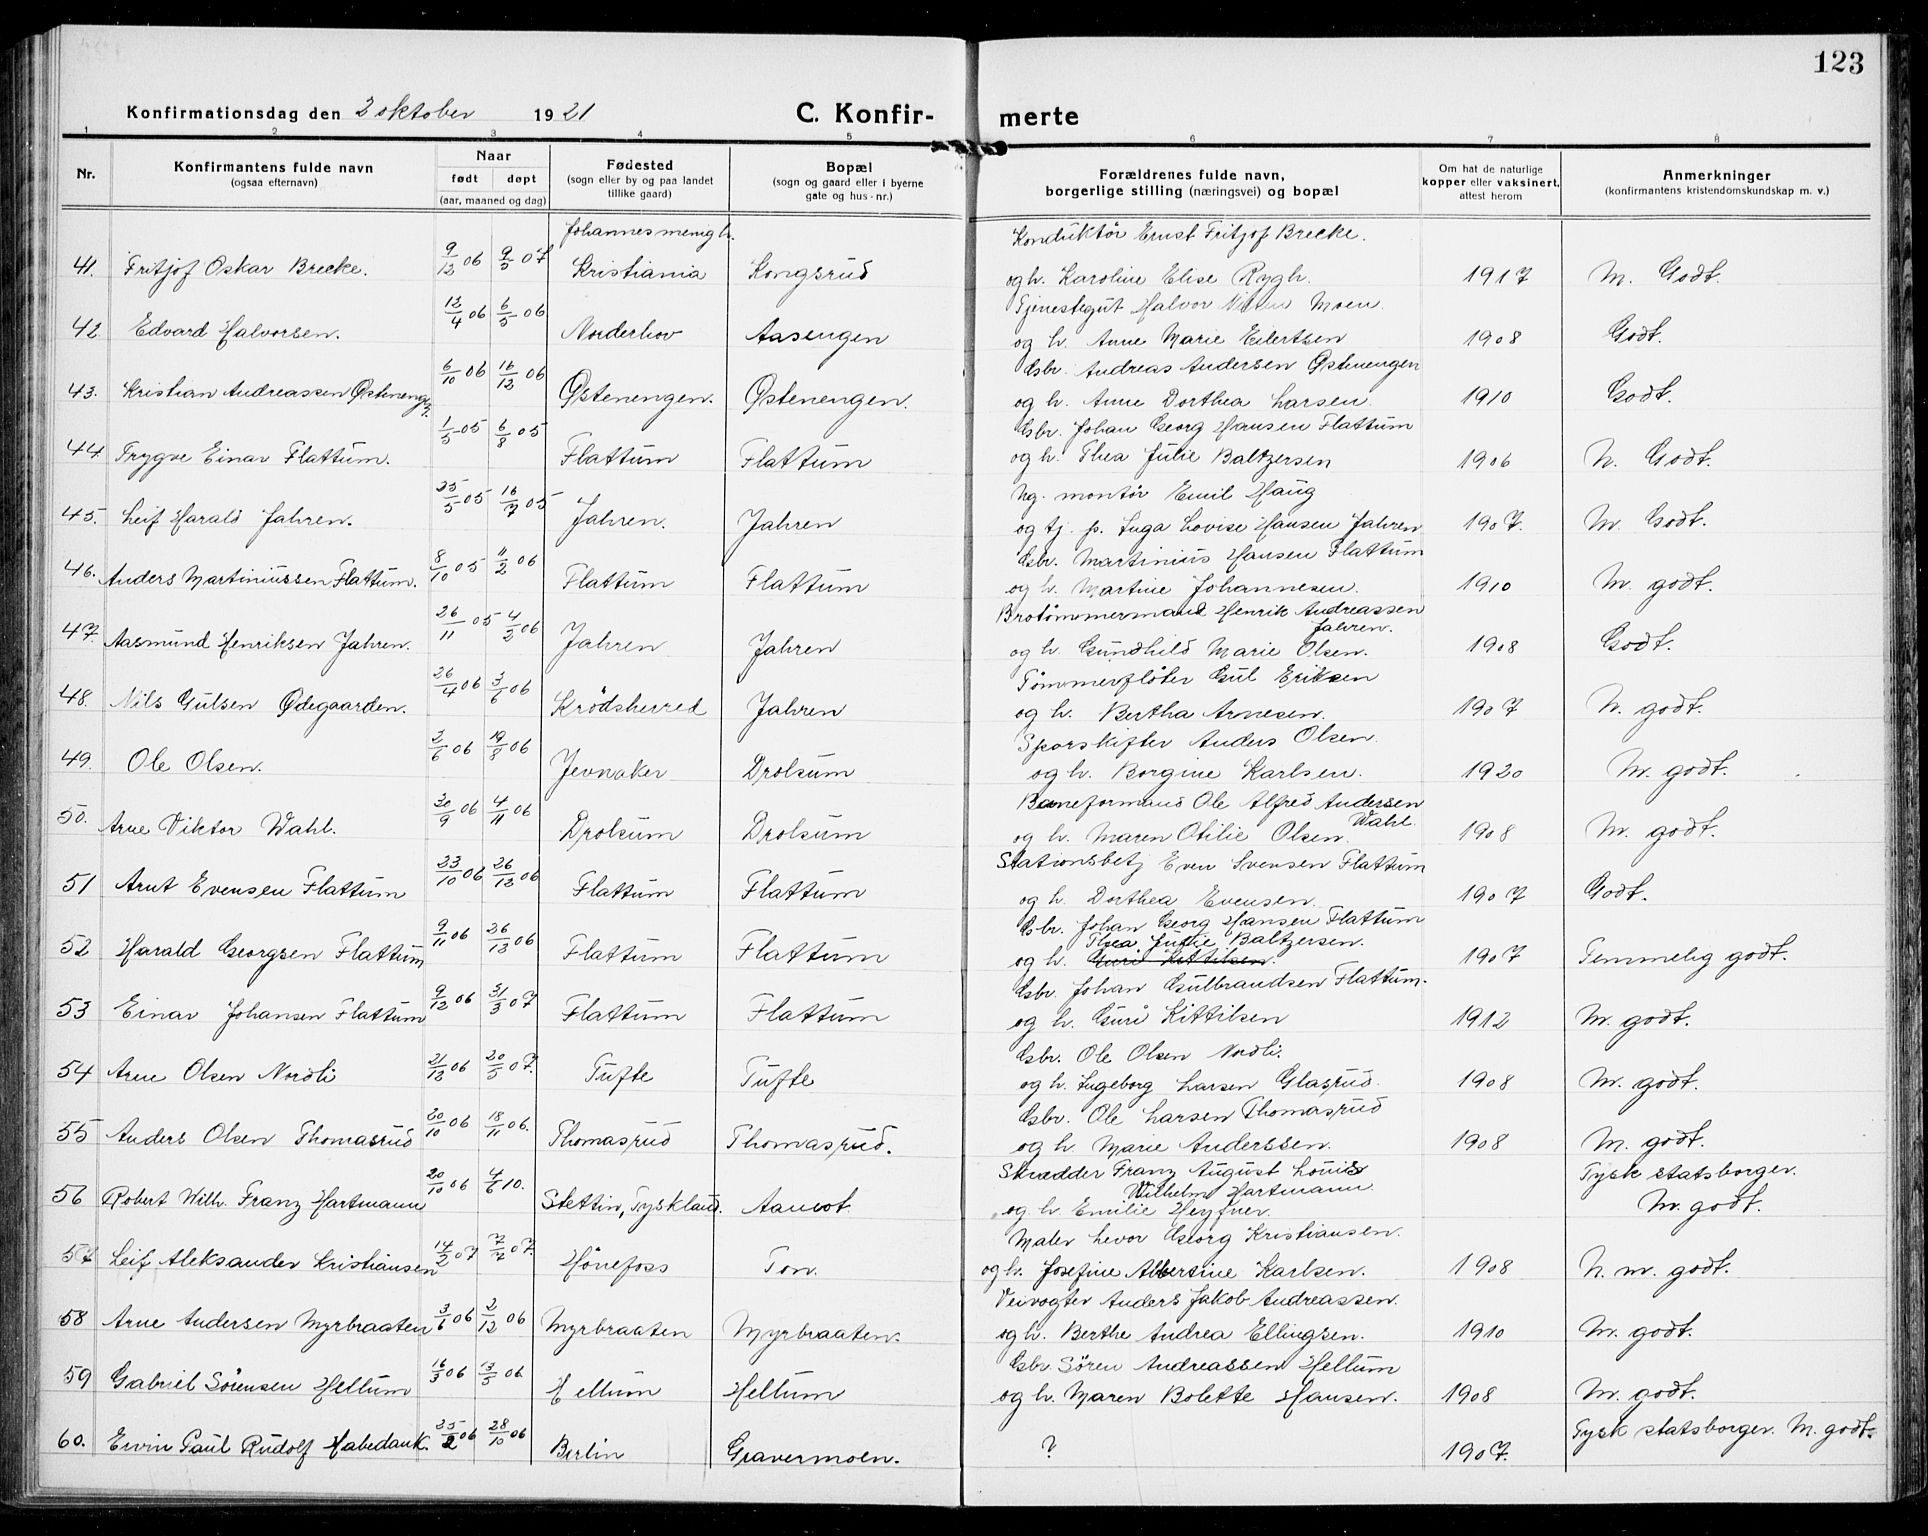 123
Konfirmationsdag den 2 oktober 1921 C. Konfir- merte
1 2 3 4 5 6 7 8
Nr. Konfirmantens fulde navn (ogsaa efternavn) Naar født døpt (aar, maaned og dag) Fødested (sogn eller by og paa landet tillike gaard) Bopæl (sogn og gaard eller i byerne gate og hus-nr.) Forældrenes fulde navn, borgerlige stilling (næringsvei) og bopæl Om hat de naturlige kopper eller vaksinert, attest herom Anmerkninger (konfirmantens kristendomskundskap m. v.)
Johannes menigh. Konduktör Ernst Fritjof Brecke.
41. Fritjof Oskar Brecke. 9/12 06 9/5 07 Kristiania Kongsrud og h. Karoline Elise Rygh. 1917 M. Godt.
Tjenestegut Halvor Moen.
42. Edvard Halvorsen. 12/4 06 6/5 06 Norderhov Aasengen og h. Anne Marie Eilertsen 1908 Godt.
Gbr. Andreas Andersen Østenengen
43. Kristian Andreassen Østeneng. 6/10 06 16/12 06 Østenengen. Østenengen. og h. Anne Dorthea Larsen. 1910 Godt.
Gbr. Johan Georg Hansen Flattum
44. Trygve Einar Flattum. 1/5 05 6/8 05 Flattum Flattum og h. Thea Julie Baltzersen 1906 N. Godt.
Ug. montör Emil Haug
45. Leif Harald Jahren. 25/5 05 16/7 05 Jahren. Jahren og tj. p. Inga Lovise Hansen Jahren 1907. M. Godt.
Gbr. Martinius Hansen Flattum
46. Anders Martiniussen Flattum. 8/10 05 11/2 06 Flattum Flattum og h. Martine Johannesen. 1910 M. godt.
Brotömmermand Henrik Andreassen Jahren.
47. Aasmund Henriksen Jahren. 26/11 05 4/2 06 Jahren Jahren og h. Gundhild Marie Olsen. 1908 Godt.
Tömmerflöter Gul Eriksen
48. Nils Gulsen Ødegaarden. 26/4 06 3/6 06 Krödsherred Jahren og h. Bertha Arnesen. 1907 N. godt.
Sporskifter Anders Olsen.
49. Ole Olsen. 2/6 06 19/8 06 Jevnaker Drolsum og h. Borgine Karlsen. 1920 M. godt.
Baneformand Ole Alfred Andersen Wahl.
50. Arne Viktor Wahl. 30/9 06 4/11 06 Drolsum Drolsum og h. Maren Otilie Olsen. 1908 M. godt.
Stationsbetj Even Svensen Flattum
51 Arnt Evensen Flattum 23/10 06 26/12 06 Flattum Flattum og h. Dorthea Evensen. 1907 Godt.
Gbr. Johan Georg Hansen Flattum
Thea Julie Baltzersen.
52 Harald Georgsen Flattum 9/11 06 26/12 06 Flattum Flattum og h. Guri Kittilsen. 1907 Temmelig godt.
Gbr. Johan Gulbrandsen Flattum.
53 Einar Johansen Flattum 9/12 06 31/3 07 Flattum Flattum og h. Guri Kittilsen 1912 M. godt.
Gbr. Ole Olsen Nordli.
54 Arne Olsen Nordli 21/12 06 20/5 07. Tufte Tufte og h. Ingeborg Larsen Glasrud. 1908 M. godt.
Gbr. Ole Larsen Thomasrud
55 Anders Olsen Thomasrud 20/10 06 18/11 06. Thomasrud Thomasrud. og h. Marie Anderssen. 1908 M. godt.
Skrædder Franz August Louis Wilhelm Hartmann Tysk statsborger.
56 Robert Wilh. Franz Hartmann 20/10 06 4/6 10. Stettin, Tyskland. Aamot. og h. Emilie Heyfner. M. godt.
Maler Levor Georg Kristiansen.
57 Leif Aleksander Kristiansen 14/2 07 7/7 07. Hönefoss Ton. og h. Josefine Albertine Karlsen. 1908 N. m. godt.
Veivogter Anders Jakob Andreassen.
58 Arne Andersen Myrbraaten 3/6 06 2/12 06 Myrbraaten Myrbraaten. og h. Berthe Andrea Ellingsen. 1910 M. godt.
Gbr. Sören Andreassen Hellum
59 Gabriel Sörensen Hellum 16/3 06 13/5 06. Hellum Hellum og h. Maren Bolette Hansen. 1908 M. godt.
60. Erwin Paul Rudolf Habedank. 25/2 06 28/10 06 Berlin Gravermoen. ? 1907. Tysk statsborger. M. godt.